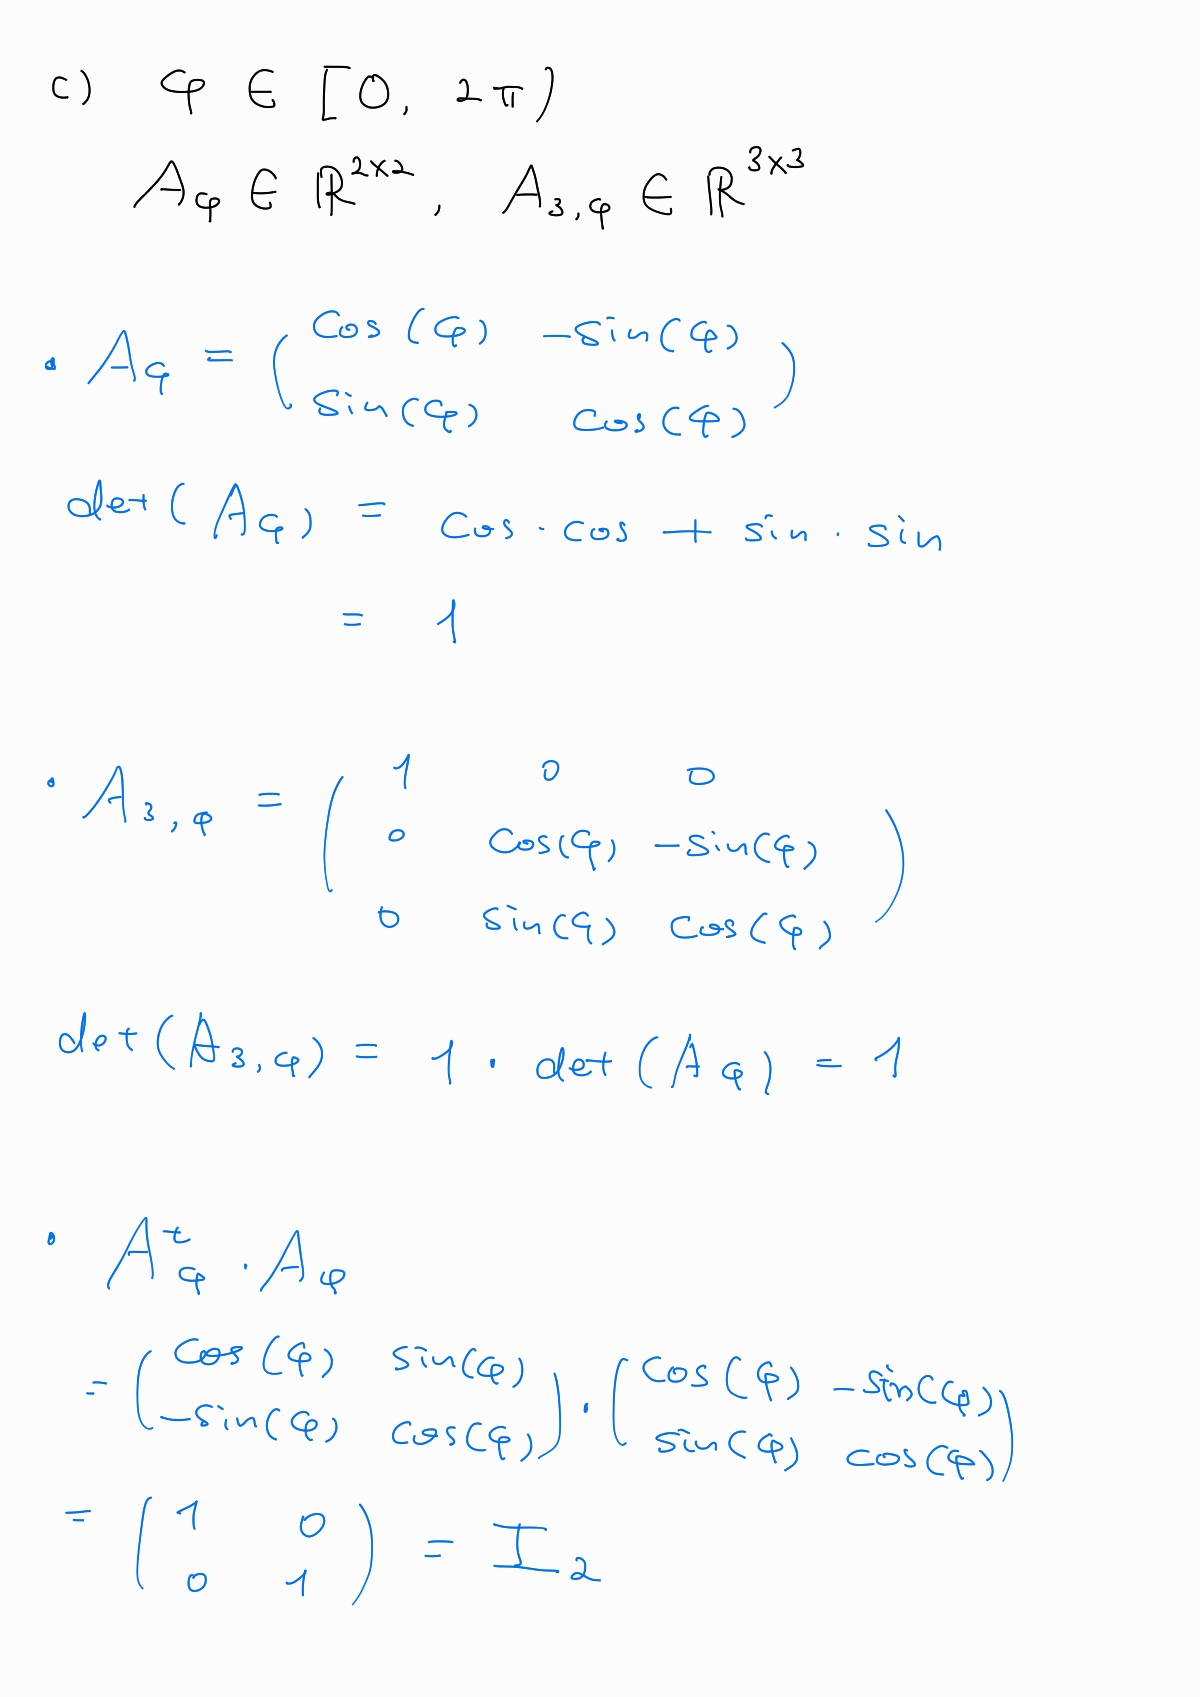 c) φ ∈ [0, 2π)
A_φ ∈ ℝ^{2×2}, A_{3,φ} ∈ ℝ^{3×3}
• A_φ = ( cos(φ) -sin(φ)
sin(φ) cos(φ) )
det(A_φ) = cos · cos + sin · sin
= 1
• A_{3,φ} = ( 1 0 0
0 cos(φ) -sin(φ)
0 sin(φ) cos(φ) )
det(A_{3,φ}) = 1 · det(A_φ) = 1
• A^t_φ · A_φ
= ( cos(φ) sin(φ) · ( cos(φ) -sin(φ)
-sin(φ) cos(φ) ) sin(φ) cos(φ) )
= ( 1 0 = I_2
0 1 )